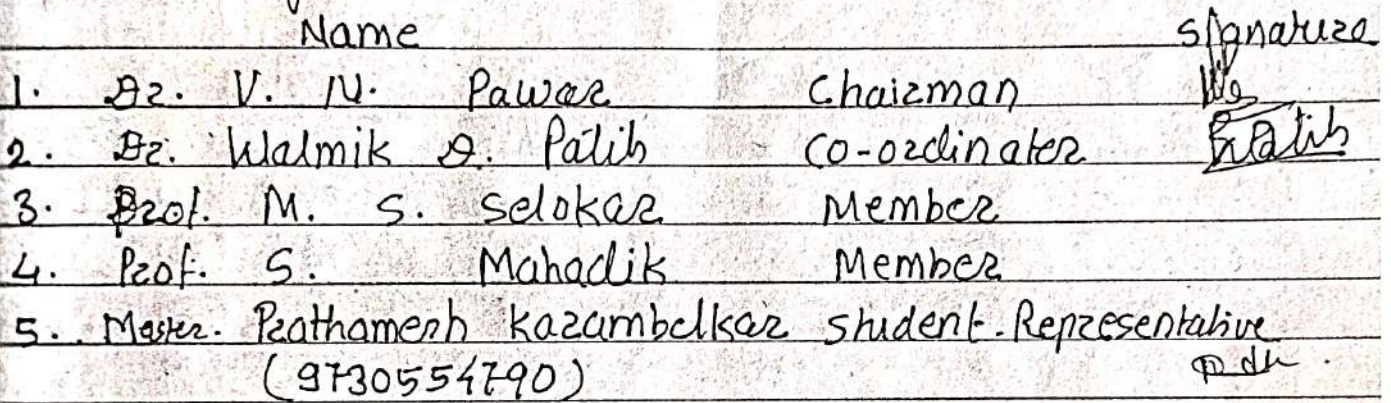 Name Signature
1. Dr. V. N. Pawar Chairman
2. Dr. Walmik D. Patil Co-ordinator
3. Prof. M. S. Selokar Member
4. Prof. S. Mahadik Member
5. Master. Prathamesh Karambelkar Student. Representative
(9730554790)